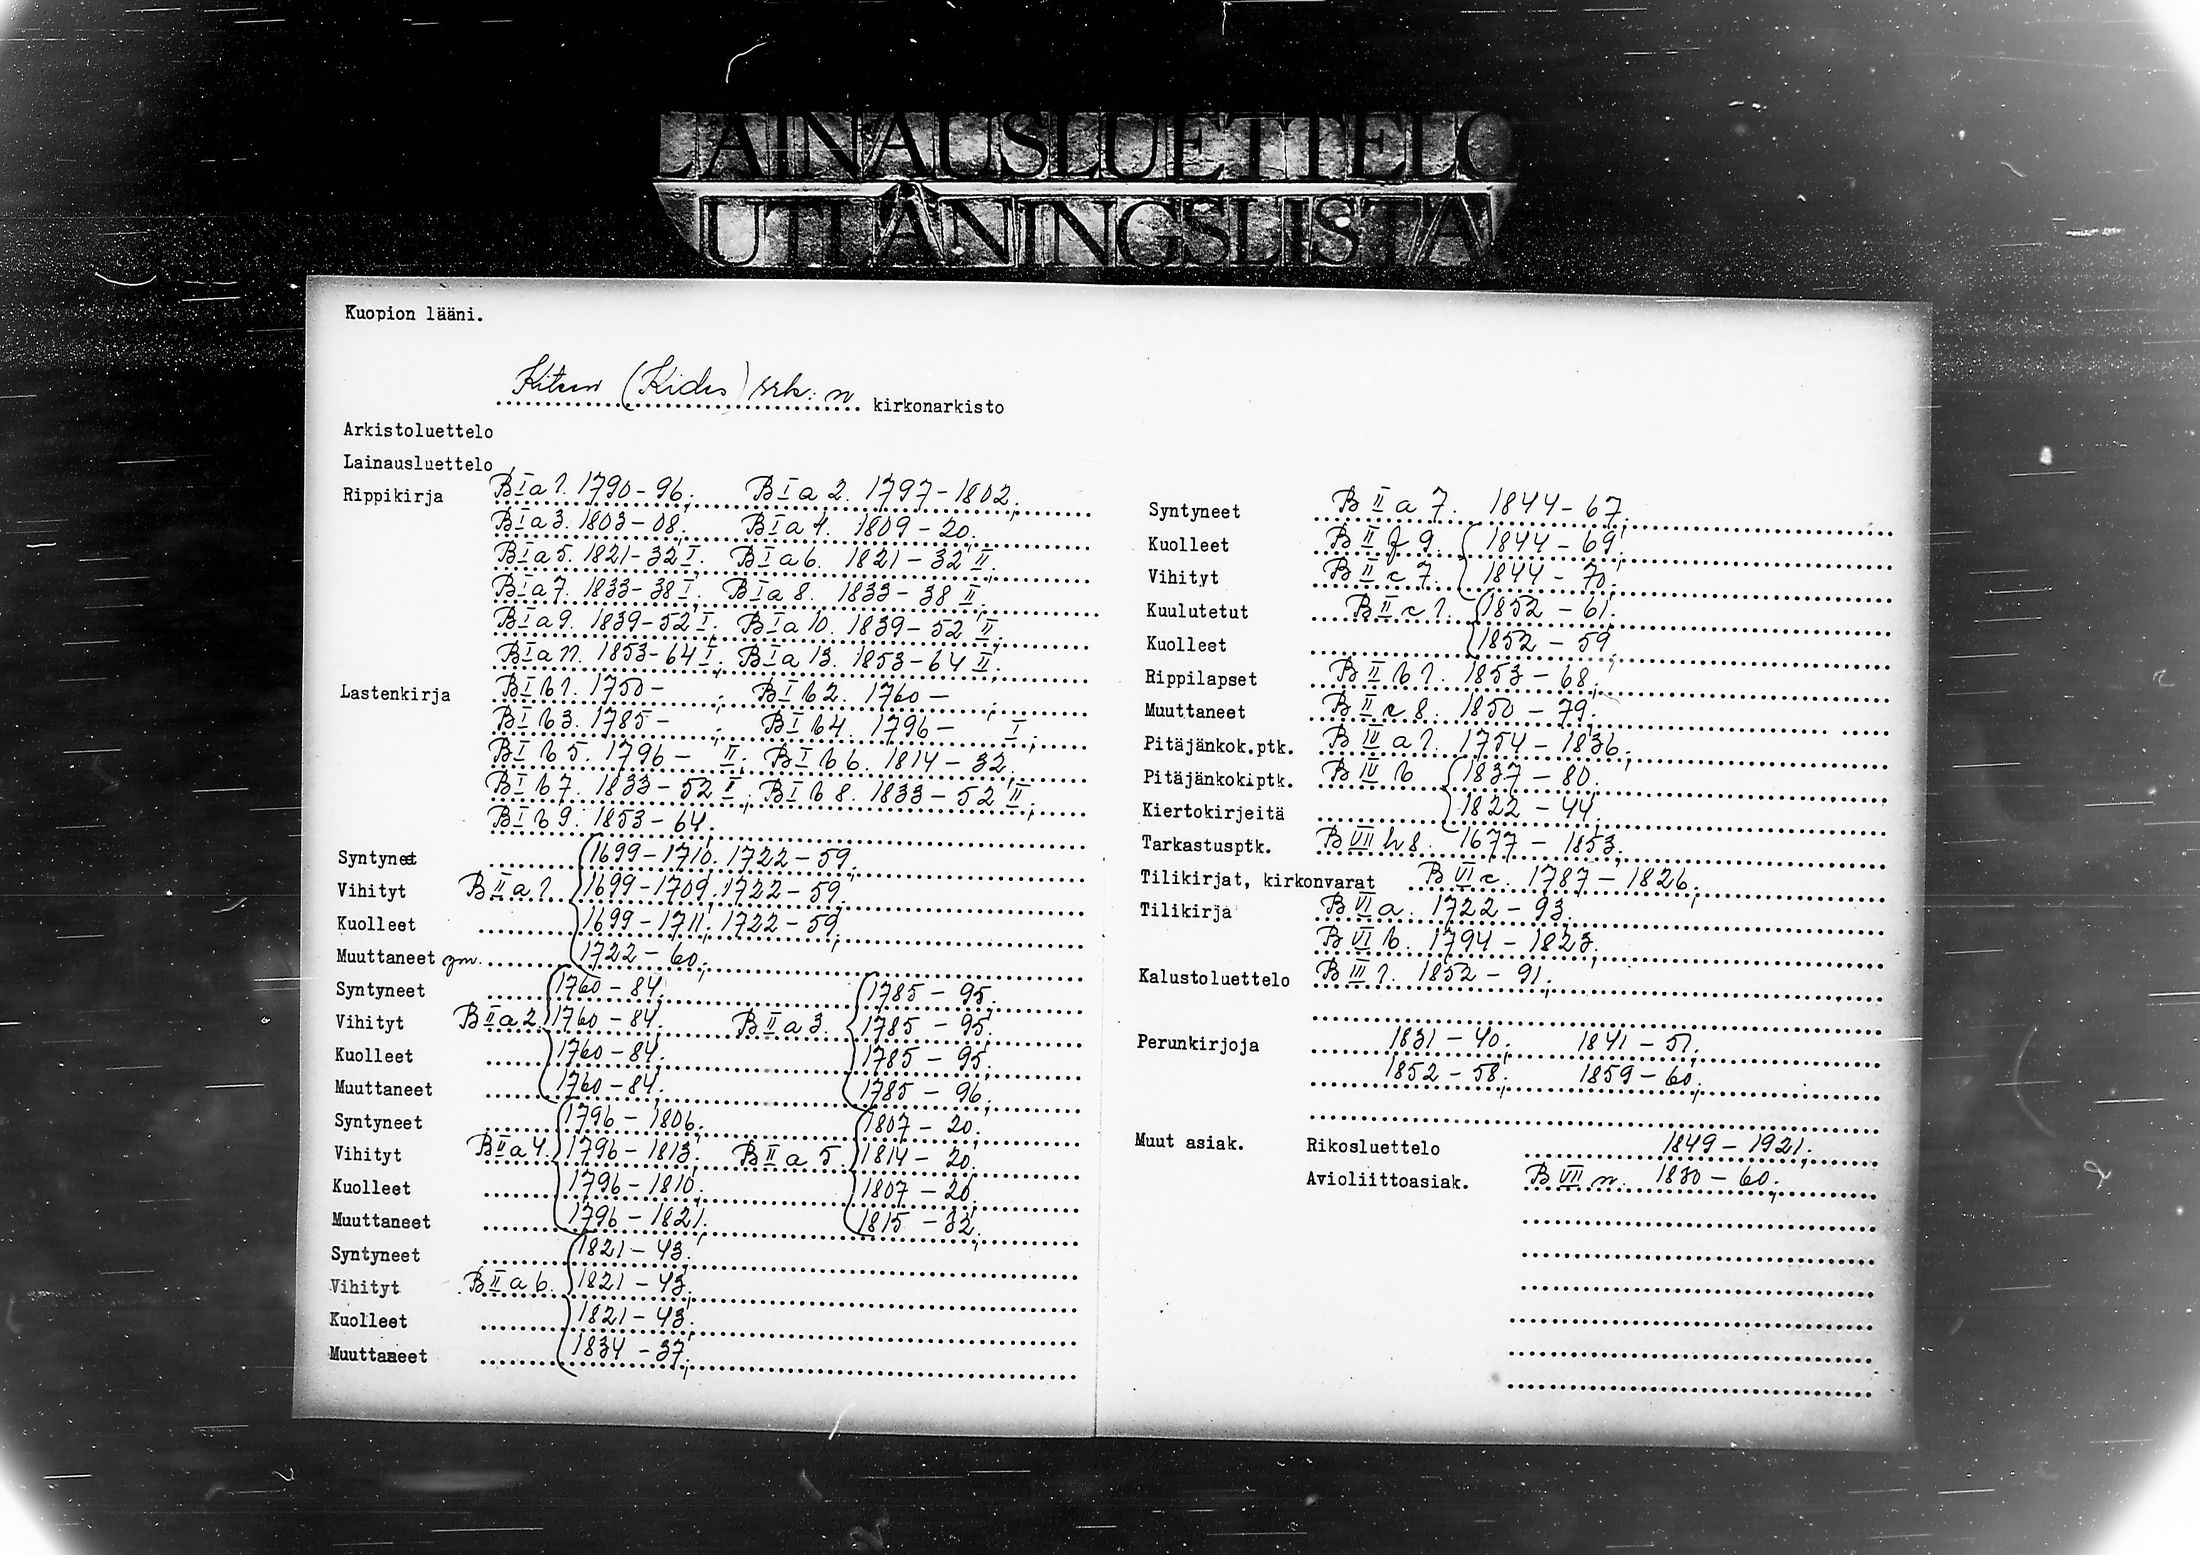 LAINAUSLUETTELO
UTLÅNINGSLISTA
Kuopion lääni.
Kiteen (Kides) srk:n kirkonarkisto
Arkistoluettelo
Lainausluettelo
Rippikirja B I a 1. 1790-96; B I a 2. 1797-1802;
B I a 3. 1803-08; B I a 4. 1809-20;
B I a 5. 1821-32 I; B I a 6. 1821-32 II;
B I a 7. 1833-38 I; B I a 8. 1833-38 II;
B I a 9. 1839-52 I; B I a 10. 1839-52 II;
B I a 11. 1853-64 I; B I a 13. 1853-64 II;
Lastenkirja B I b 1. 1750- ; B I b 2. 1760- ;
B I b 3. 1785- ; B I b 4. 1796- I;
B I b 5. 1796- II; B I b 6. 1814-32;
B I b 7. 1833-52 I; B I b 8. 1833-52 II;
B I b 9. 1853-64;
Syntyneet 1699-1710; 1722-59;
Vihityt B II a 1. 1699-1709; 1722-59;
Kuolleet 1699-1711; 1722-59;
Muuttaneet ym. 1722-60;
Syntyneet 1760-84; 1785-95;
Vihityt B II a 2. 1760-84; B II a 3. 1785-95;
Kuolleet 1760-84; 1785-95;
Muuttaneet 1760-84; 1785-96;
Syntyneet 1796-1806; 1807-20;
Vihityt B II a 4. 1796-1813; B II a 5. 1814-20;
Kuolleet 1796-1810; 1807-20;
Muuttaneet 1796-1821; 1815-32;
Syntyneet 1821-43;
Vihityt B II a 6. 1821-43;
Kuolleet 1821-43;
Muuttaneet 1834-37;
Syntyneet B II a 7. 1844-67;
Kuolleet B II f 9. 1844-69;
Vihityt B II c 7. 1844-70;
Kuulutetut B II c 1. 1852-61;
Kuolleet 1852-59;
Rippilapset B II b 1. 1853-68;
Muuttaneet B II c 8. 1850-79;
Pitäjänkok.ptk. B III a 1. 1754-1836;
Pitäjänkok.ptk. B IV b 1837-80;
Kiertokirjeitä 1822-44;
Tarkastusptk. B VII h 8. 1677-1853;
Tilikirjat, kirkonvarat B VI c. 1787-1826;
Tilikirja B VI a. 1722-93;
B VI b. 1794-1823;
Kalustoluettelo B III 1. 1852-91;
Perunkirjoja 1831-40; 1841-51;
1852-58; 1859-60;
Muut asiak. Rikosluettelo 1849-1921;
Avioliittoasiak. B VII n. 1830-60;